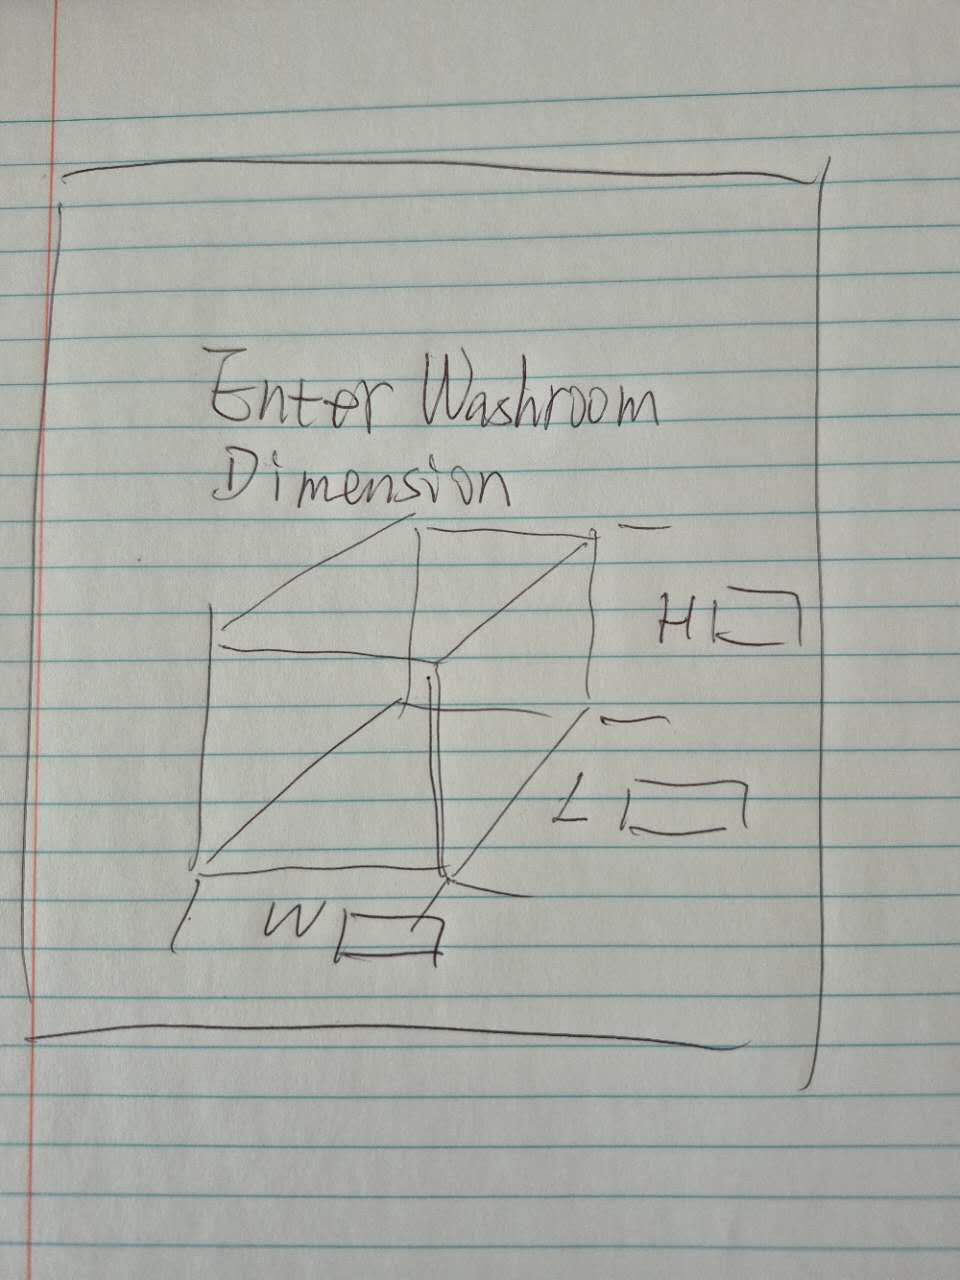 Enter Washroom
Dimension
H
L
W